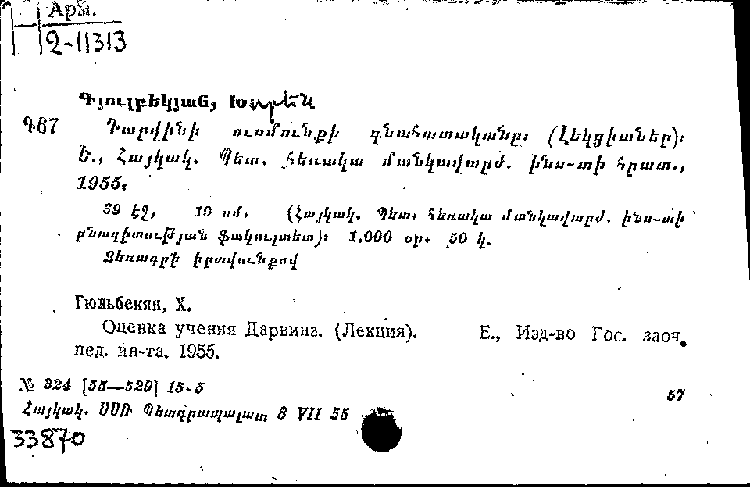 Арм.
2-11313
Գյուլբեկյան, Խորեն
Գ67 Դարվինի ուսմունքի գնահատականը: (Լեկցիաներ):
Ե., Հայկակ. Պետ. հեռակա մանկավարժ. ինս-տի հրատ.,
1955:
39 էջ, 19 սմ. (Հայկակ. Պետ. հեռակա մանկավարժ. ինս-տի
բնագիտության ֆակուլտետ): 1.000 օր. 50 կ.
Ձեռագրի իրավունքով
Гюльбекян, Х.
Оценка учения Дарвина. (Лекция). Е., Изд-во Гос. заоч.
пед. ин-та, 1955.
№ 324 [55—529] 15-5 57
Հայկակ. ՍՍՌ Պետգրապալատ 8 VII 55
33870